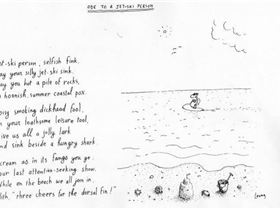 ODE TO A JET-SKI PERSON
et-ski person, selfish fink,
ay your silly jet-ski sink,
ay you hit a pile of rocks,
hoonish, summer coastal pox.
oisy smoking dickhead fool,
n your loathsome leisure tool,
ive us all a jolly lark
nd sink beside a hungry shark.
cream as in its fangs you go,
our last attention-seeking show,
hile on the beach we all join in
ith, "three cheers for the dorsal fin!"